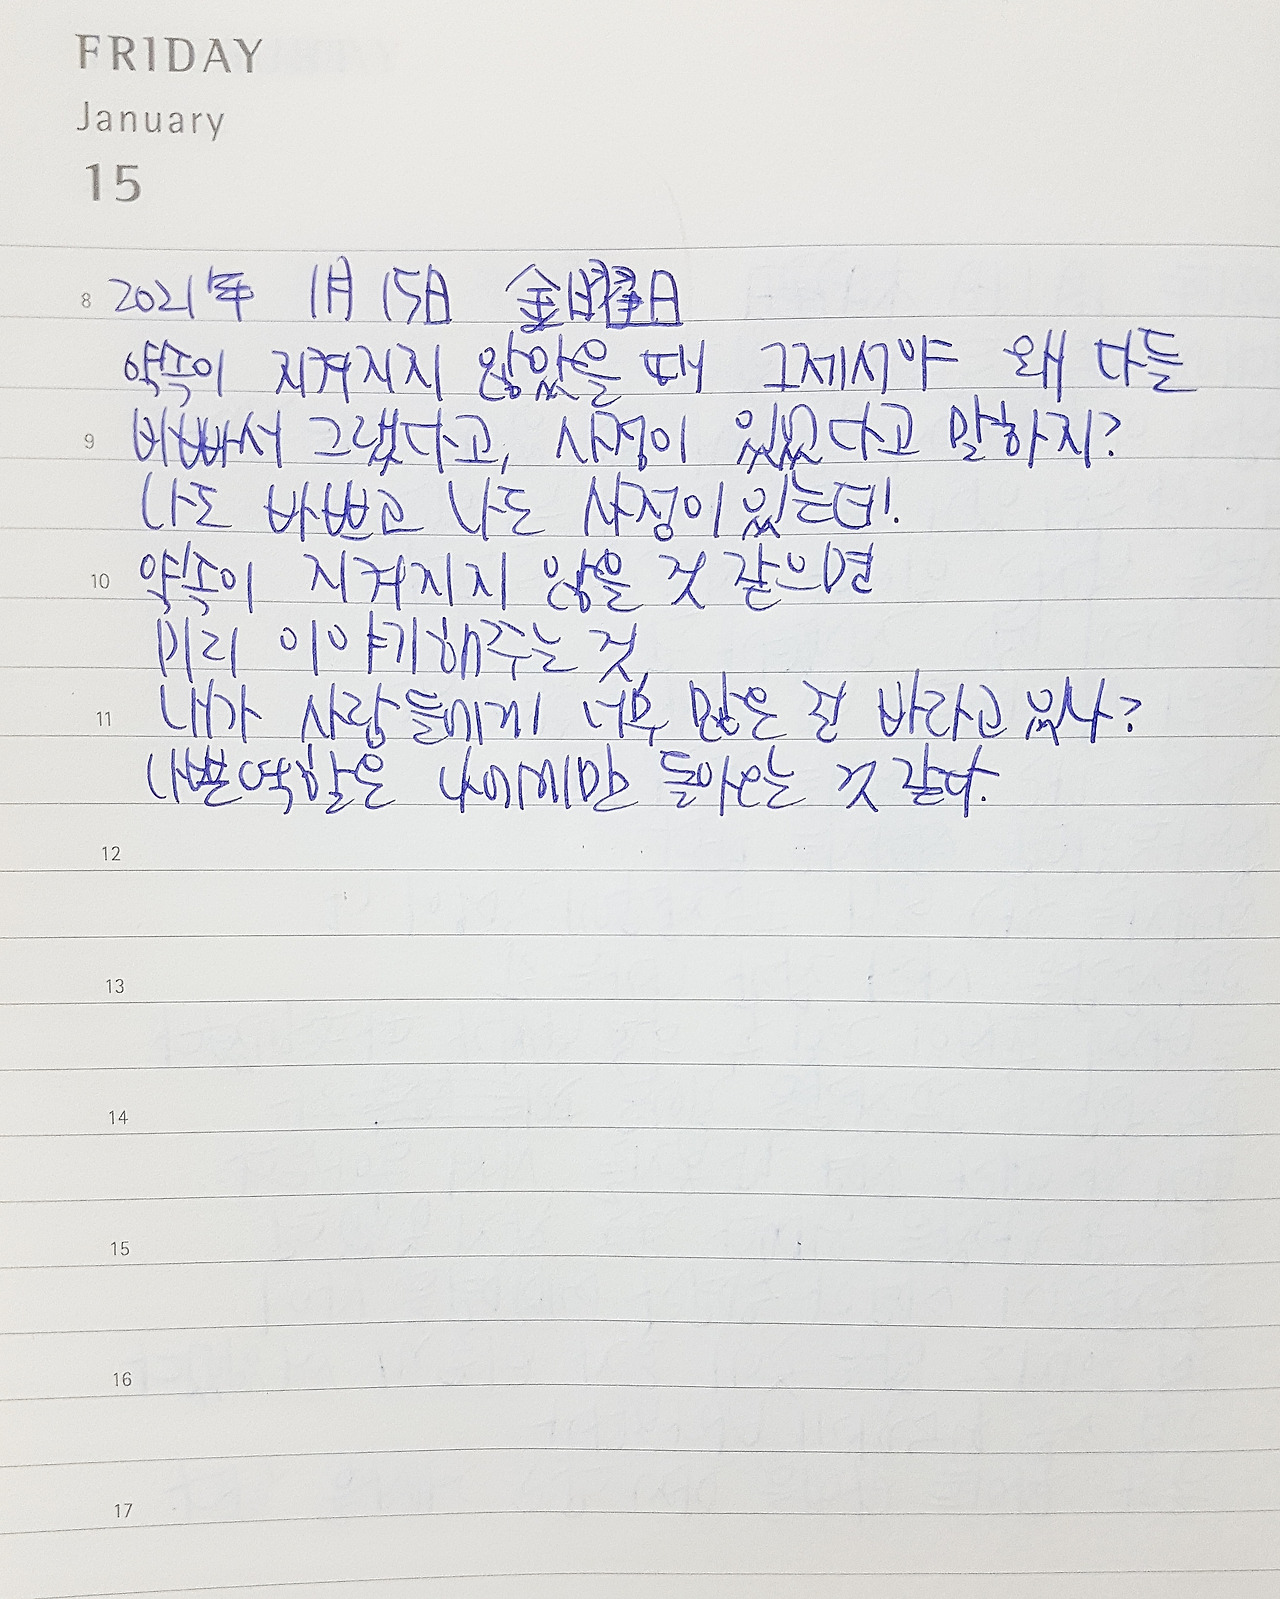 FRIDAY
January
15
8 2021年 1月 15日 金曜日
약속이 지켜지지 않았을 때 그제서야 왜 다들
9 바빠서 그랬다고, 사정이 있었다고 말하지?
나도 바쁘고 나도 사정이 있는데!
10 약속이 지켜지지 않을 것 같으면
미리 이야기해주는 것,
11 내가 사람들에게 너무 많은 걸 바라고 있나?
나쁜역할은 나에게만 돌아오는 것 같다.
12
13
14
15
16
17